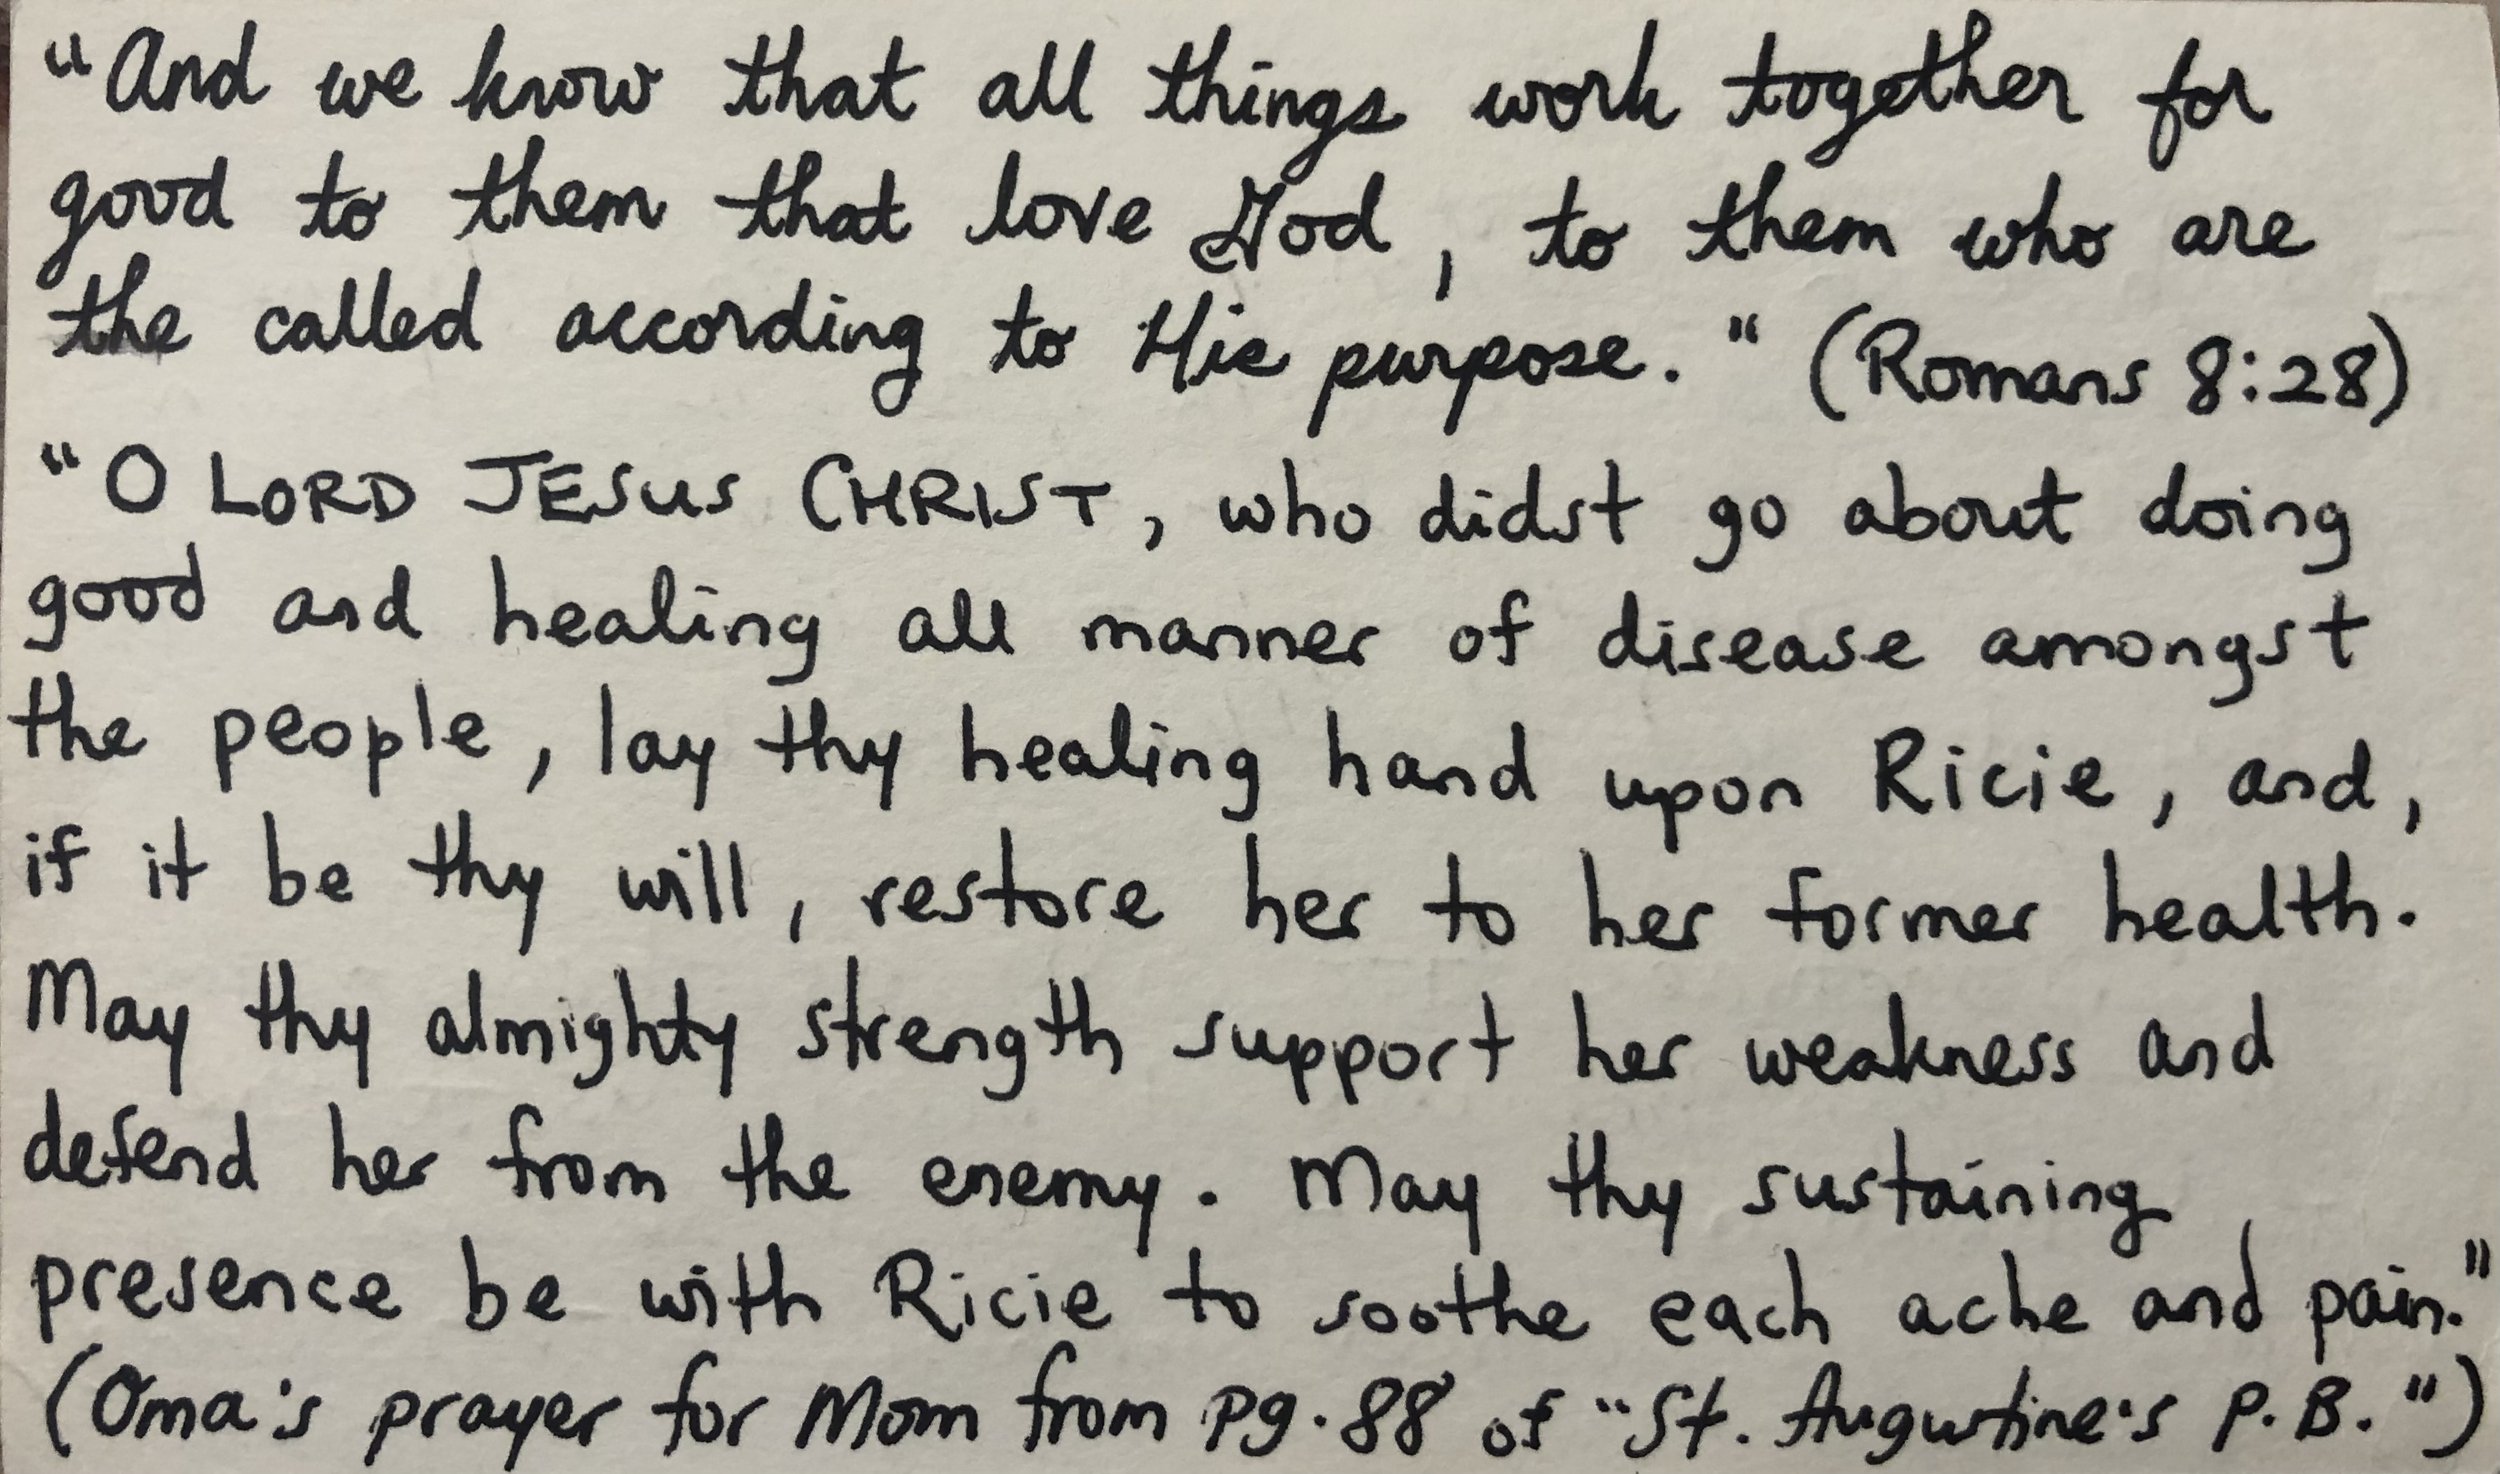 "And we know that all things work together for
good to them that love God, to them who are
the called according to His purpose." (Romans 8:28)
"O LORD JESUS CHRIST, who didst go about doing
good and healing all manner of disease amongst
the people, lay thy healing hand upon Ricie, and,
if it be thy will, restore her to her former health.
May thy almighty strength support her weakness and
defend her from the enemy. May thy sustaining
presence be with Ricie to soothe each ache and pain."
(Oma's prayer for Mom from pg. 88 of "St. Augustine's P.B.")